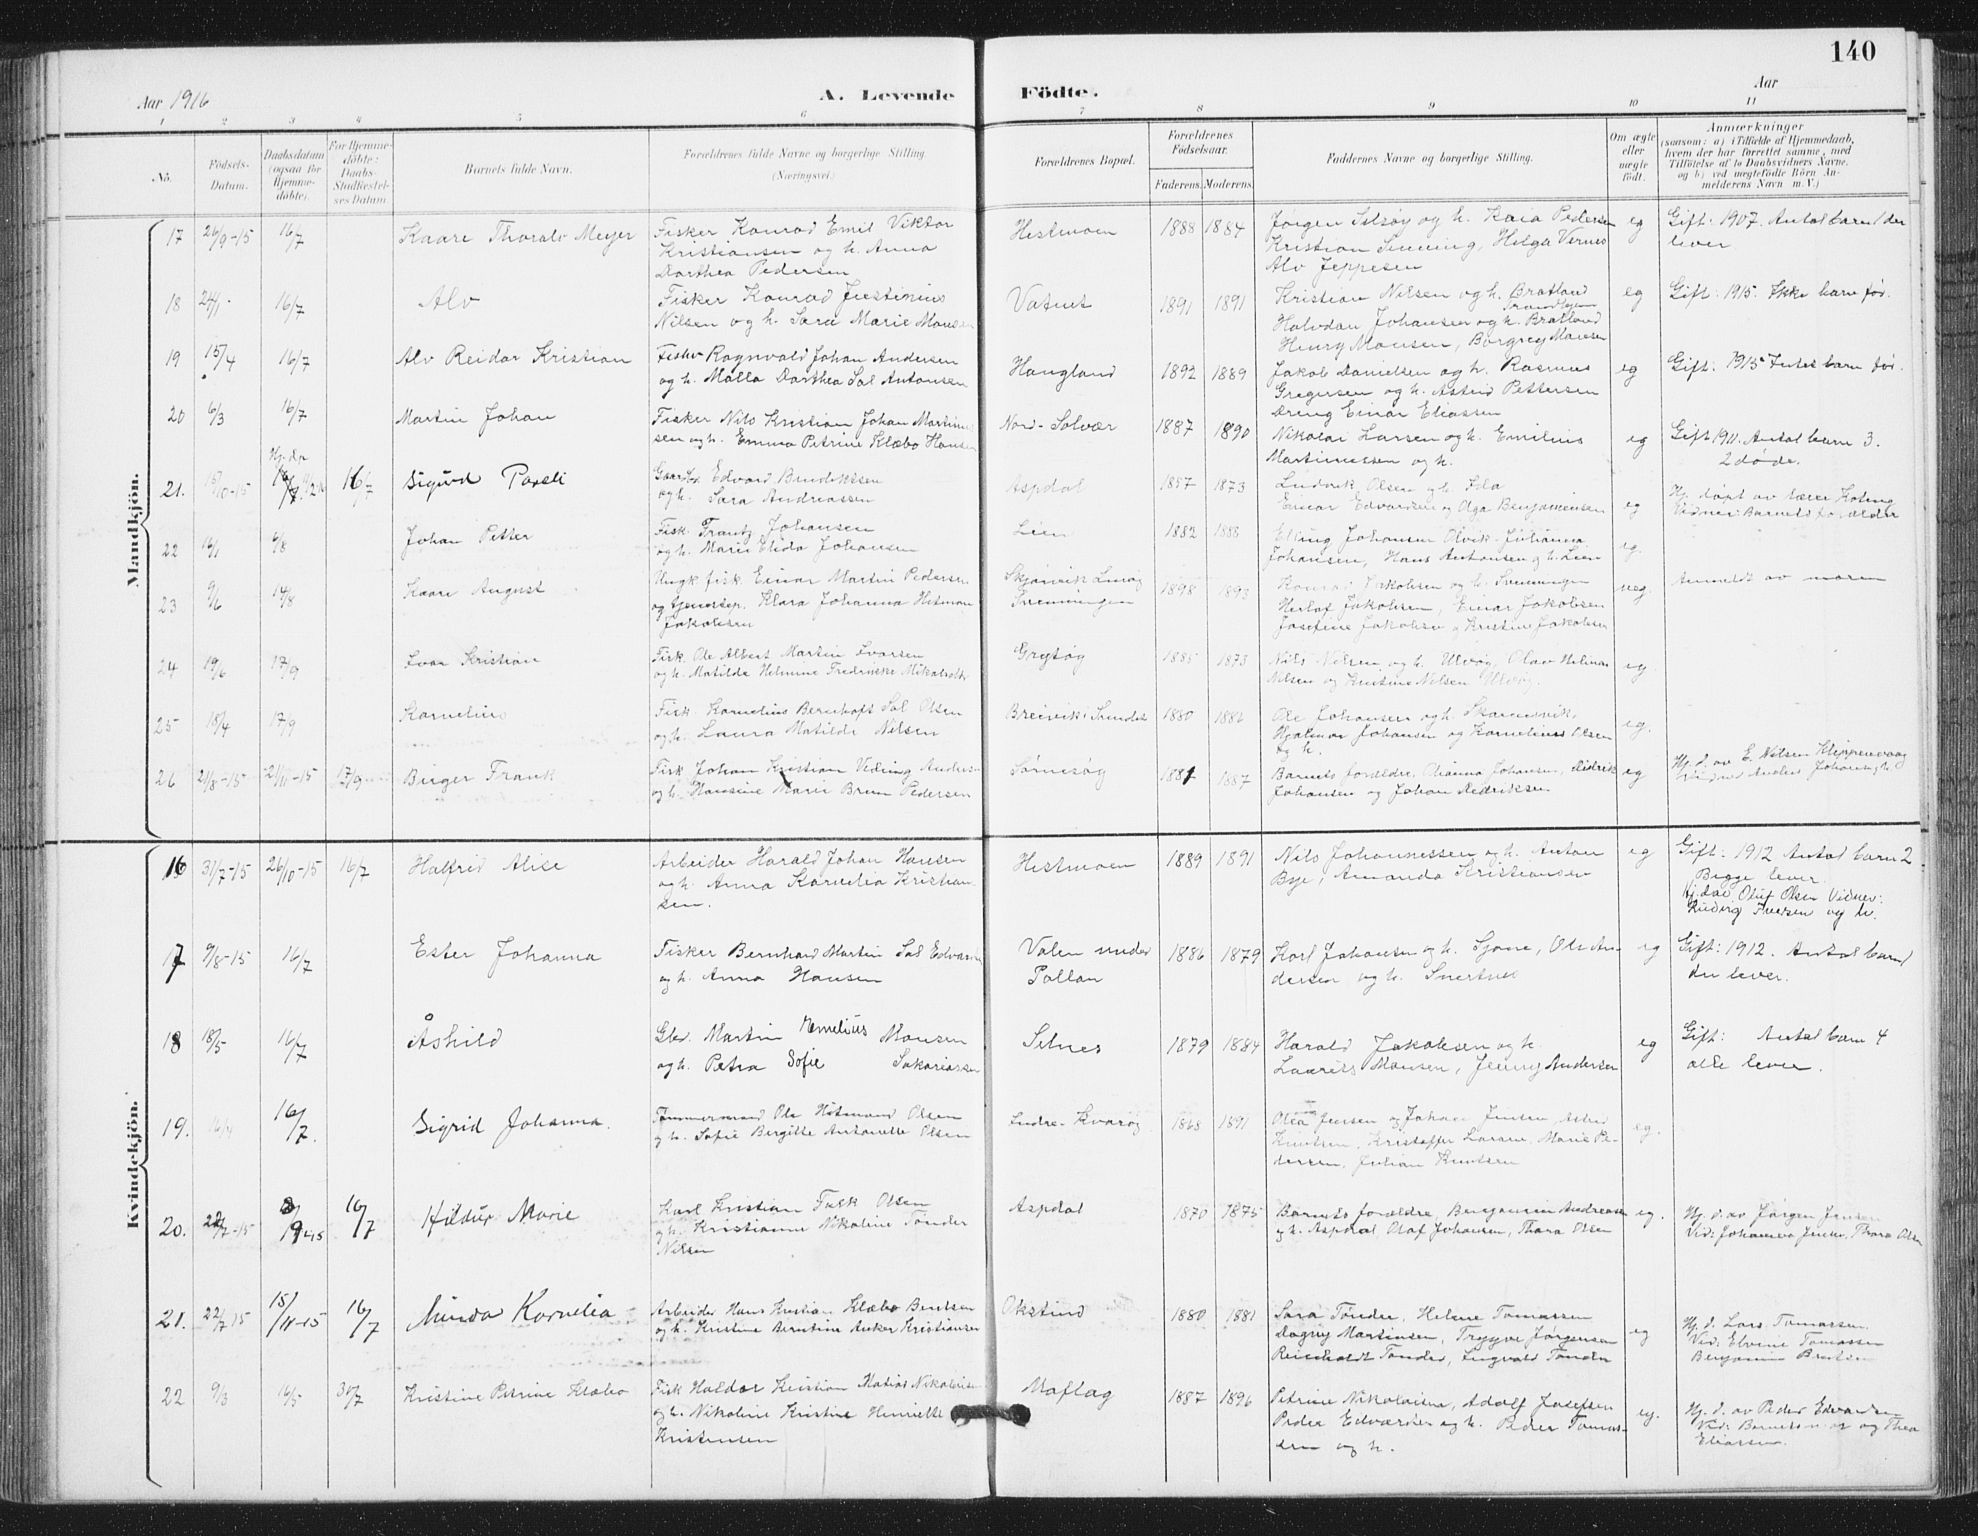 140
Aar 1916
A. Levende Födte.
Aar
1 2 3 4 5 6 7 8 9 10 11
No. Födsels-Datum. Daabsdatum (ogsaa for Hjemmedöbte). For Hjemmedöbte: Daabs-Stadfæstelses Datum. Barnets fulde Navn. Forældrenes fulde Navne og borgerlige Stilling. (Næringsvei.) Forældrenes Bopæl. Forældrenes Födselsaar. Faderens. Moderens. Faddernes Navne og borgerlige Stilling. Om ægte eller uægte födt. Anmærkninger (saasom: a) i Tilfælde af Hjemmedaab, hvem der har forrettet samme, med Tilföielse af to Daabsvidners Navne. og b) ved uægtefödte Börn Anmelderens Navn m. V.)
Mandkjön.
17 26/9-15 16/7 Kaare Thoralv Meyer Fisker Konrad Emil Viktor Hestmoen 1888 1884 Jørgen Selsøy og h. Kaia Pedersen eg Gift: 1907. Antal barn 1 der
Kristiansen og h. Anna Kristian Sunning, Helga Vernes lever
Dorthea Pedersen Alv Jeppesen
18 24/1 16/7 Alv Fisker Konrad Justinius Vatnet 1891 1891 Kristian Nilsen og h. Bratland eg Gift: 1915. Ikke barn før.
Nilsen og h. Sara Marie Monsen Halvdan Johansen og h. Bratland
Henry Monsen, Borgny Monsen
19 15/4 16/7 Alv Reidar Kristian Fisker Ragnvald Johan Andersen Haugland 1892 1889 Jakob Danielsen og h. Rasmus eg Gift: 1915 Intet barn før.
og h. Malla Dorthea Sal Antonsen Gregersen og h. Astrid Pettersen
Dreng Einar Eliassen
20 6/3 16/7 Martin Johan Fisker Nils Kristian Johan Martinus- Nord-Solvær 1887 1890 Nikolai Larsen og h. Emilius eg Gift 1911. Antal barn 3.
sen og h. Emma Petrine Klæbo Hansen Martinussen og h. 2 døde.
21. 15/10-15 16/7 Sigurd Pareli Edvard Bendiktsen Aspdal 1857 1873 Ludvik Olsen og h. Ida eg Hj. døpt av lærer
og h. Sara Andreassen Einar Edvardsen og Olga Benjaminsen Vidner: Barnets forældre
22 6/8 Johan Petter Fisk. Frantz Johansen Lien 1882 1888 Elling Johansen Olvik Julianna eg.
og h. Marie Elida Johansen Johansen, Hans Antonsen og h. Lien
23 9/6 14/8 Kaare August Ungk. fisk. Einar Martin Pedersen 1898 1893 og h. Svenningen ueg. Anmeldt av moren
og tjenestep. Klara Johanna Hitman Svenningen Herlof Jakobsen, Einar Jakobsen
Jakobsen Josefine Jakobsen og Kristine Jakobsen
24 19/6 17/9 Ivar Kristian Fisk. Ole Albert Martin Ivarsen Grytøy 1885 1873 Nils Nilsen og h. Ulvøy, Olav eg.
og h. Matilde Helmine Fredrikke Nilsen og Kristine Nilsen Ulvøy.
25 18/4 17/9 Kornelius Fisk. Kornelius Bernhoft Sal Olsen Breivik i Sundet 1880 1886 Ole Johansen og h. eg.
og h. Laura Matilde Nilsen Hjalmar Johansen og Kornelius Olsen
og h.
26 21/8-15 21/11-15 17/9 Birger Frank Fisk Johan Kristian Viking Andersen Sørnesøy 1881 1887 Barnets forældre, Olianna Johansen, Didrik eg Hj. d. av E. Nilsen Klippenvaag
og h. Hansine Marie Brun Pedersen Johansen og Johan Didriksen
Kvindekjön.
16 31/7-15 26/10-15 16/7 Halfrid Alise Arbeider Harald Johan Hansen Hestmoen 1889 1891 Nils Johannessen og h. Anton eg Gift: 1912 Antal barn 2
og h. Anna Kornelia Kristian- Bye, Amanda Kristiansen Begge lever.
sen. Hj. d. av Oluf Olsen Vidner:
Ludvig Iversen og h.
17 9/8-15 16/7 Ester Johanna Fisker Bernhard Martin Sal Edvardsen Valen under 1886 1879 Karl Johansen og h. Sjone, Ole An- eg Gift: 1912. Antal barn 1
og h. Anna Hansen Pollan dersen og h. den lever.
18 18/5 16/7 Åshild Gbr. Martin Kornelius Monsen Selnes 1879 1884 Harald Jakobsen og h. eg Gift: Antal barn 4
og h. Petra Sofie Sakariassen Laurits Monsen, Jenny Andersen alle lever.
19. 16/7. Sigrid Johanna. Tømmermand Ole Olsen Indre-Kvarøy 1868 1891 Olea Jensen og Johan Jensen, Astrid eg.
og h. Sofie Birgitte Antonette Olsen Knutsen, Kristoffer Larsen, Marie Pe-
dersen, Julian Knutsen
20. 22/7-15 16/7 Hildur Marie Karl Kristian Falk Olsen Aspdal 1870 1875 Barnets forældre, Benjamin Andreassen eg. Hj. d. av Jørgen Jensen
og h. Kristianne Nikoline Tønder og h. Aspdal, Olaf Johansen, Thora Olsen Vid: Johanna Jensen, Thora Olsen
Nilsen
21. 22/7-15 15/11-15 16/7 Minda Kornelia Arbeider Hans Kristian Klæbo Bentsen Okstind 1880 1881 Sara Tønder, Helene Tomassen eg Hj. d. Lars Tomassen.
og h. Kristine Berntine Anker Kristiansen Dagny Martinsen, Trygve Jørgensen Vid: Elvine Tomassen
Reinholdt Tønder, Ingvald Tønder Benjamin Bentsen
22 9/3 16/5 30/7 Kristine Petrine Klæbo Fisk Haldor Kristian Matias Nikolaisen Moflag 1887 1896 Petrine Nikolaisen, Adolf Josefsen eg. Hj. d. av Peder Edvardsen
og h. Nikoline Kristine Henriette Peder Edvardsen og h. Peder Tomas- Vid: Barnets og Thea
Kristensen sen og h. Eliassen